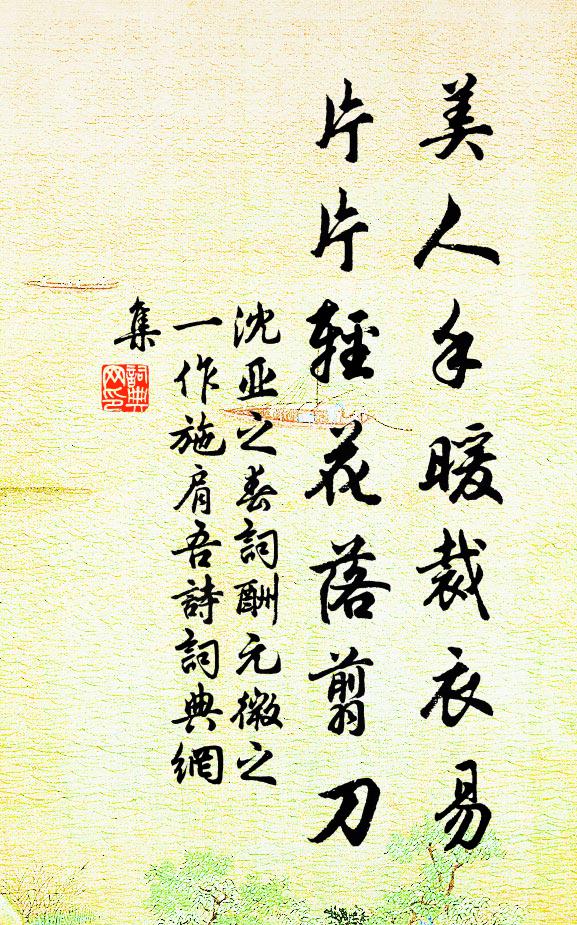 美人手暖裁衣易
片片輕花落翦刀
沈亚之春詞酬元微之
一作施肩吾詩詞典網
集
詞典
网印